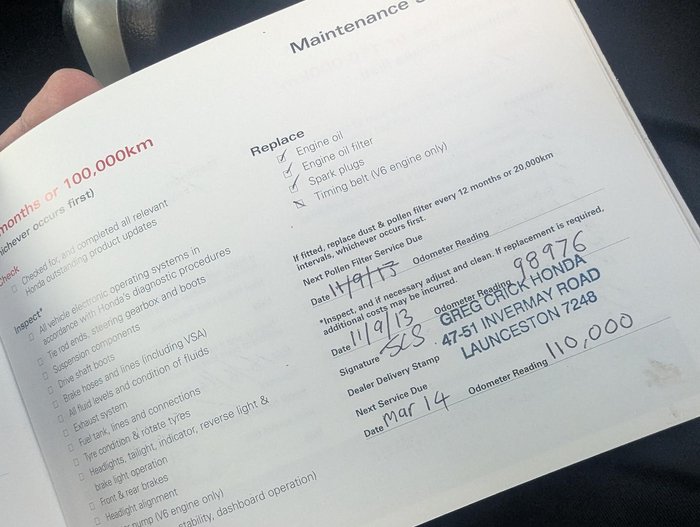 Maintenance
months or 100,000km
(whichever occurs first)
Check
Checked for, and completed all relevant
Honda outstanding product updates
Inspect*
All vehicle electronic operating systems in
accordance with Honda's diagnostic procedures
Tie rod ends, steering gearbox and boots
Suspension components
Drive shaft boots
Brake hoses and lines (including VSA)
All fluid levels and condition of fluids
Exhaust system
Fuel tank, lines and connections
Tyre condition & rotate tyres
Headlights, tailight, indicator, reverse light &
brake light operation
Front & rear brakes
Headlight alignment
pump (V6 engine only)
stability, dashboard operation)
Replace
Engine oil
Engine oil filter
Spark plugs
Timing belt (V6 engine only)
If fitted, replace dust & pollen filter every 12 months or 20,000km
intervals, whichever occurs first.
Next Pollen Filter Service Due
Date 11/9/13 Odometer Reading
*Inspect, and if necessary adjust and clean. If replacement is required,
additional costs may be incurred.
Date 11/9/13 Odometer Reading 98976
Signature SCS
GREG CRICK HONDA
47-51 INVERMAY ROAD
LAUNCESTON 7248
Dealer Delivery Stamp
Next Service Due
Date Mar 14 Odometer Reading 110,000